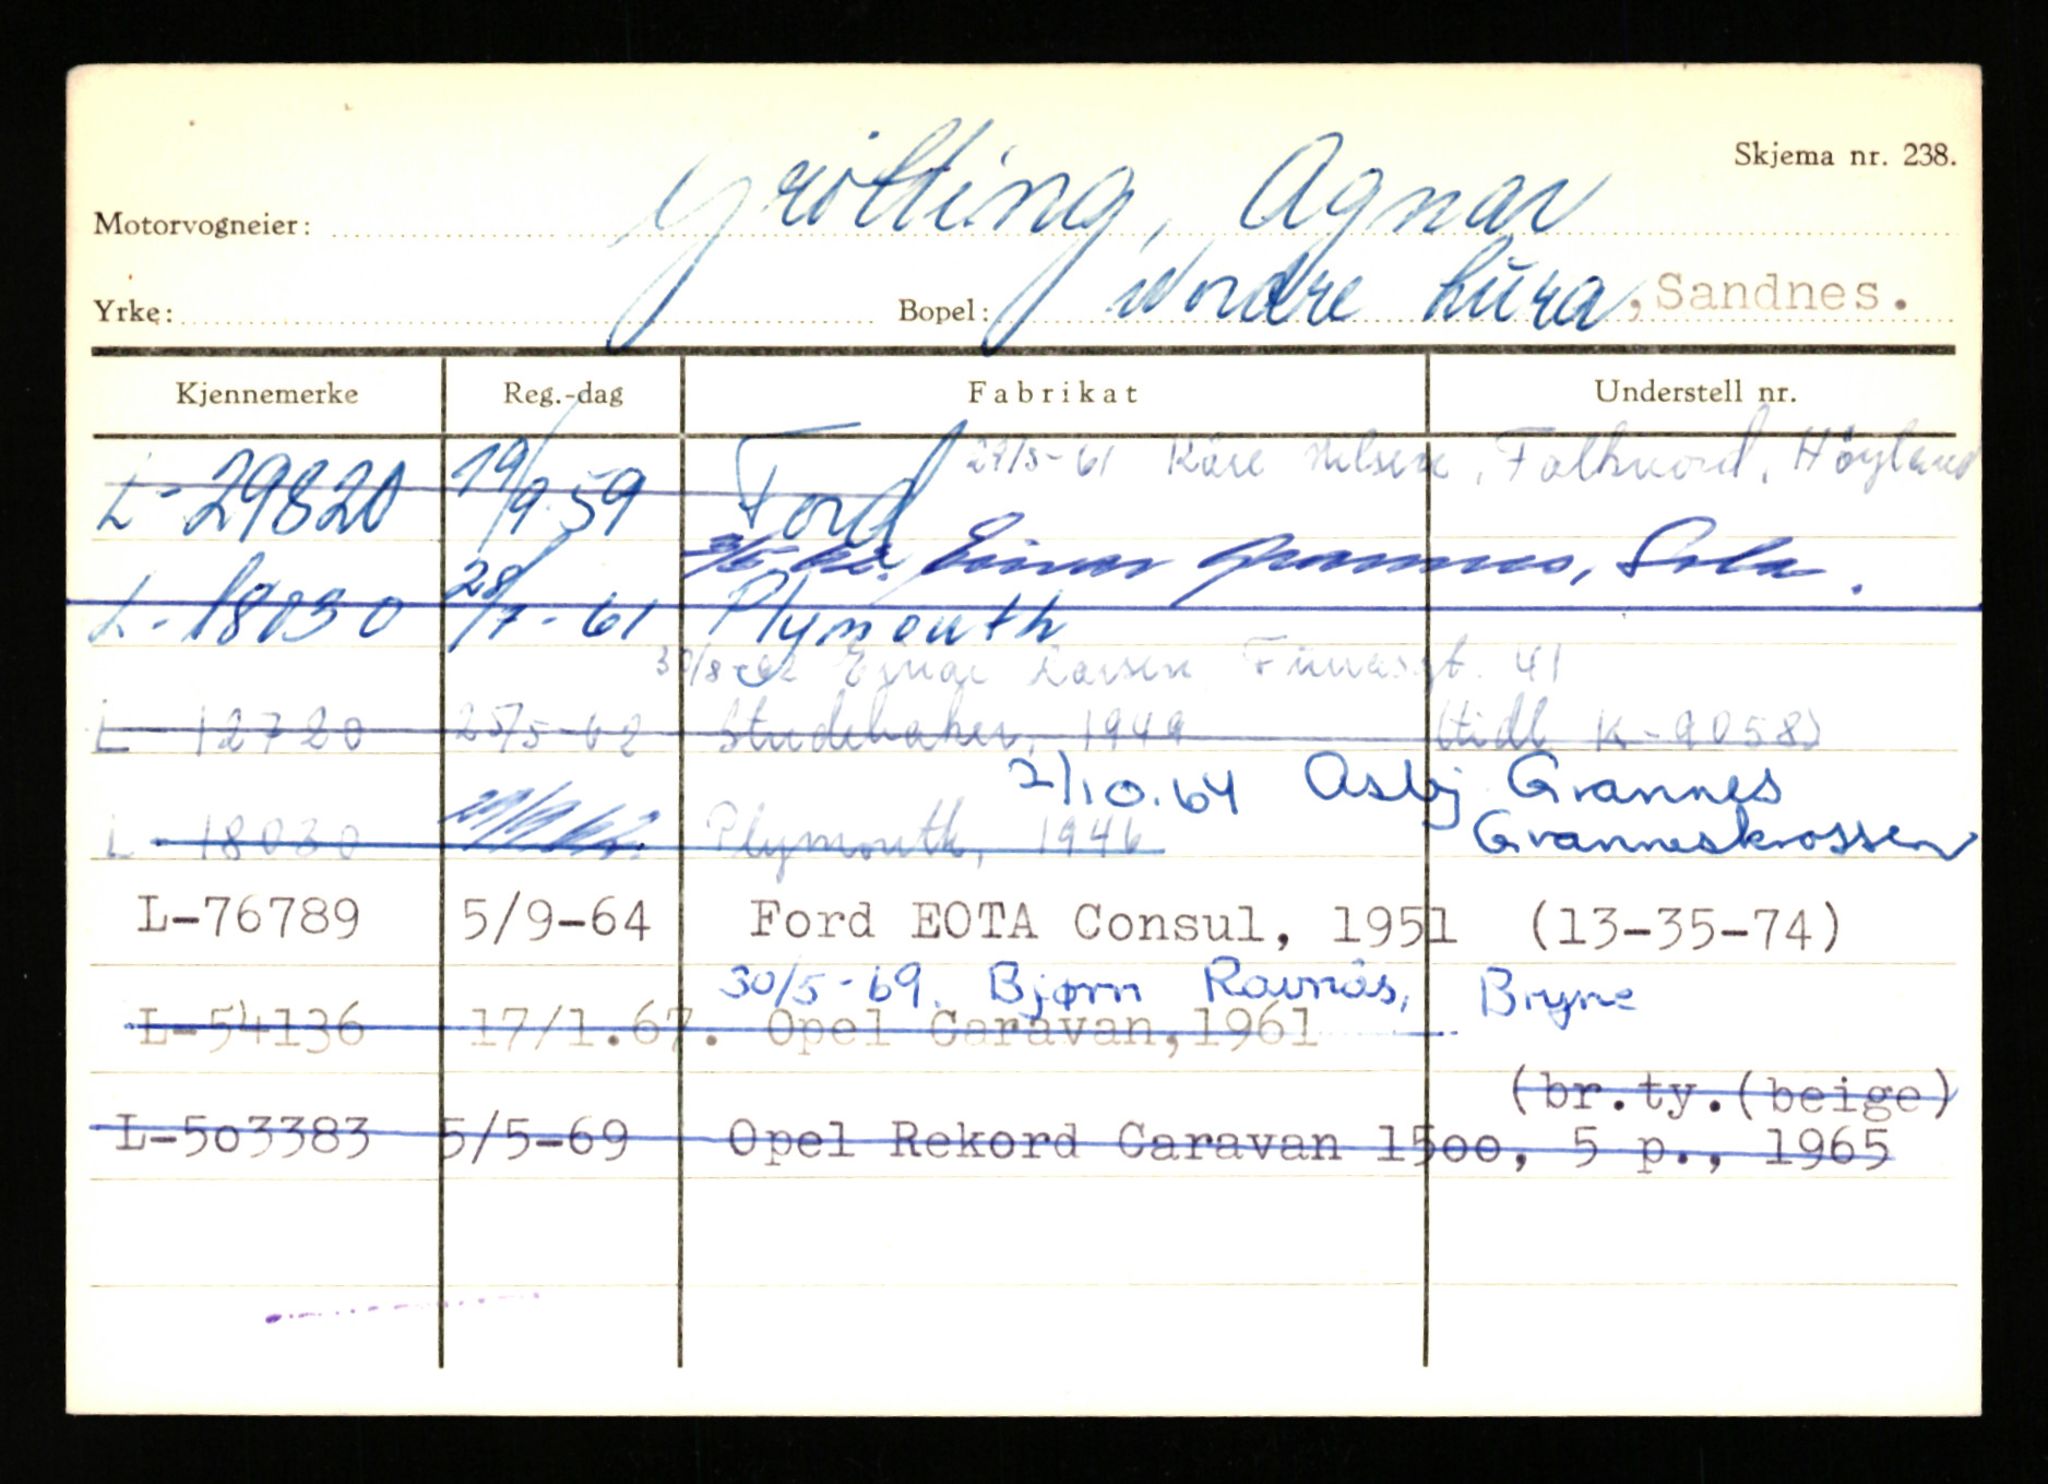 Skjema nr. 238.
Motorvogneier: Grötting, Agnar
Yrke: Bopel: Nordre Lura, Sandnes.
Kjennemerke Reg.-dag Fabrikat Understell nr.
27/5-61 Kåre Nilsen, Folkvord, Höyland
L-29820 19/9 59 Ford
Einar Grannes, Sola.
L-18030 28/7-61 Plymouth
30/8-62 Einar Larsen 41
L-12720 25/5-62 Studebaker, 1949 (tidl K-9058)
2/10.64 Asbj Grannes
L-18030 Plymouth, 1946 Granneskrossen
L-76789 5/9-64 Ford EOTA Consul, 1951 (13-35-74)
30/5-69. Bjørn Ravnås, Bryne
L-54136 17/1.67. Opel Caravan,1961
(br.ty.(beige)
L-503383 5/5-69 Opel Rekord Caravan 1500, 5 p., 1965